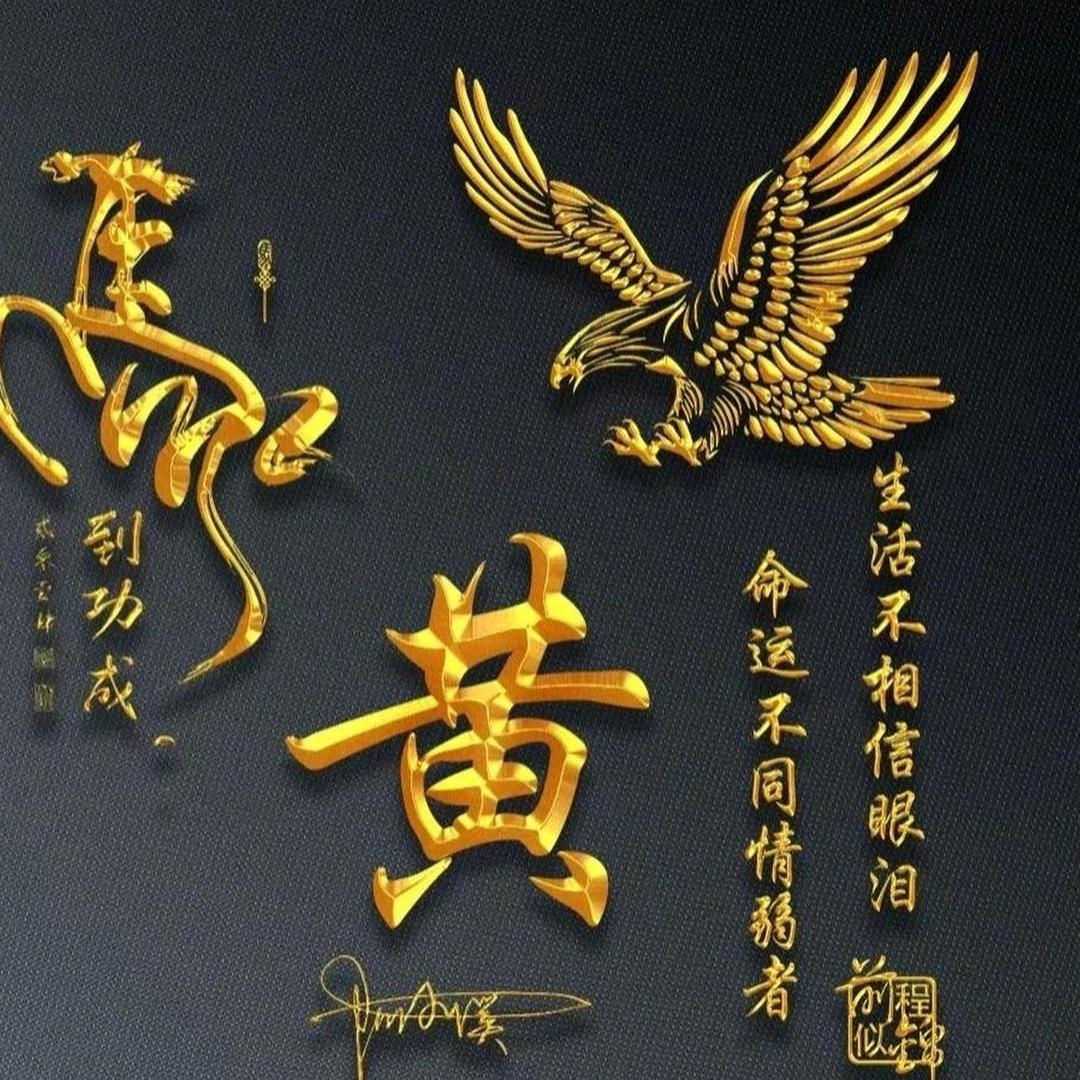 生活不相信眼泪
命运不同情弱者
前程似锦
黄
马
到功成